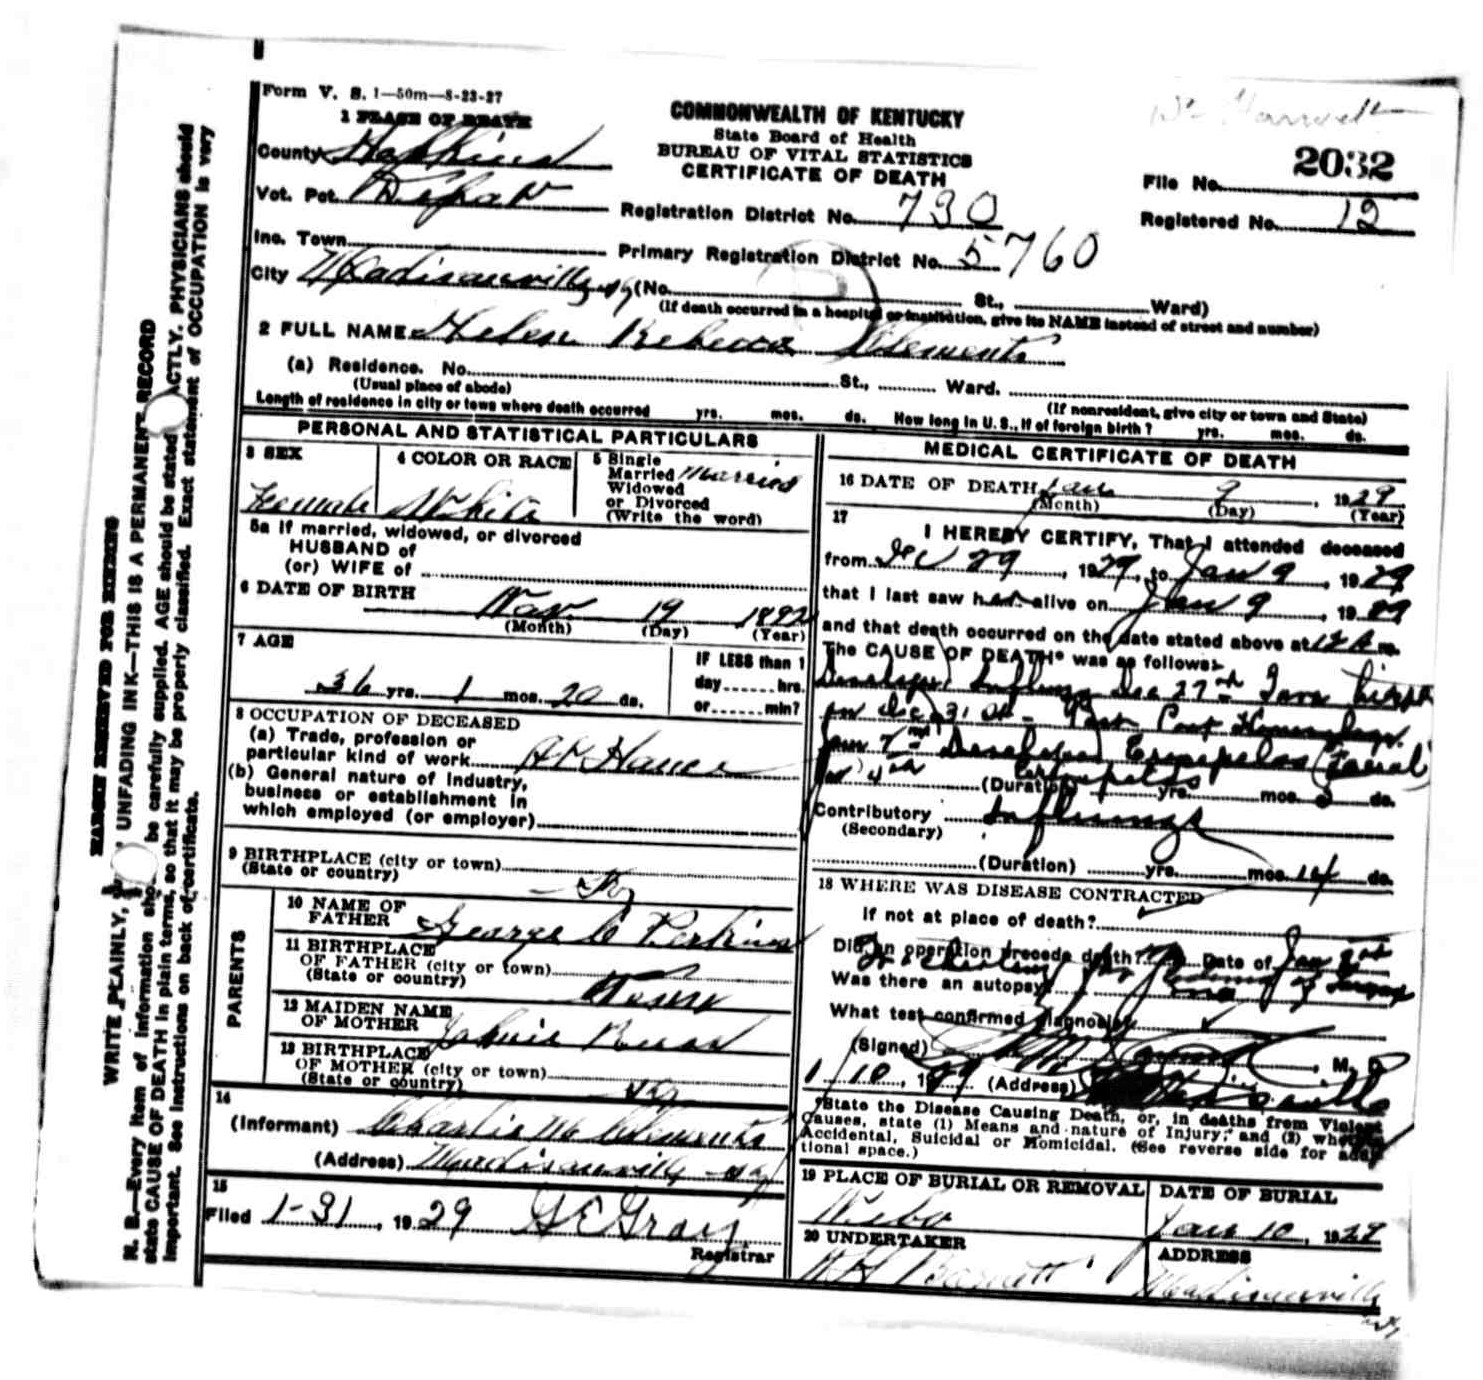 Form V. S. 1—50m—8-23-27
1 PLACE OF DEATH
COMMONWEALTH OF KENTUCKY
State Board of Health
BUREAU OF VITAL STATISTICS
CERTIFICATE OF DEATH
File No. 2032
Registered No. 12
County Hopkins
Vot. Pct. Depot
Registration District No. 730
Inc. Town
Primary Registration District No. 5760
City Madisonville, Ky (No. St., Ward)
(If death occurred in a hospital or institution, give its NAME instead of street and number)
2 FULL NAME Helen Rebecca Clements
(a) Residence. No. St., Ward.
(Usual place of abode)
(If nonresident, give city or town and State)
Length of residence in city or town where death occurred yrs. mos. ds. How long in U. S., if of foreign birth? yrs. mos. ds.
PERSONAL AND STATISTICAL PARTICULARS
3 SEX
Female
4 COLOR OR RACE
White
5 Single
Married Married
Widowed
or Divorced
(Write the word)
5a If married, widowed, or divorced
HUSBAND of
(or) WIFE of
6 DATE OF BIRTH
Nov. 19 1892
(Month) (Day) (Year)
7 AGE
36 yrs. 1 mos. 20 ds.
IF LESS than 1
day hrs.
or min?
8 OCCUPATION OF DECEASED
(a) Trade, profession or
particular kind of work At Home
(b) General nature of industry,
business or establishment in
which employed (or employer)
9 BIRTHPLACE (city or town)
(State or country) Ky
PARENTS
10 NAME OF
FATHER George C Perkins
11 BIRTHPLACE
OF FATHER (city or town)
(State or country) Tenn
12 MAIDEN NAME
OF MOTHER
13 BIRTHPLACE
OF MOTHER (city or town)
(State or country) Ky
14
(Informant) Charlie M Clements
(Address) Madisonville Ky
15
Filed 1-31, 1929 G E Gray
Registrar
MEDICAL CERTIFICATE OF DEATH
16 DATE OF DEATH Jan 9, 1929
(Month) (Day) (Year)
17
I HEREBY CERTIFY, That I attended deceased
from Dec 29, 1929, to Jan 9, 1929
that I last saw her alive on Jan 9, 1929
and that death occurred on the date stated above at 12 A m.
The CAUSE OF DEATH* was as follows:
Developed Influenza Dec 27th Gave birth
on Dec 31 st Post Part Hemorrhage
Jan 2nd Developed Erysipelas (Facial)
4th
(Duration) yrs. mos. ds.
Contributory Influenza
(Secondary)
(Duration) yrs. mos. 14 ds.
18 WHERE WAS DISEASE CONTRACTED
If not at place of death?
Did an operation precede death? Date of Jan
Was there an autopsy? no
What test confirmed diagnosis?
(Signed) , M. D
1/10, 1929 (Address)
*State the Disease Causing Death, or, in deaths from Violent
Causes, state (1) Means and nature of Injury; and (2) whether
Accidental, Suicidal or Homicidal. (See reverse side for addi-
tional space.)
19 PLACE OF BURIAL OR REMOVAL
Nebo
DATE OF BURIAL
Jan 10, 1929
20 UNDERTAKER
Barnett
ADDRESS
Madisonville
Ky
MARGIN RESERVED FOR BINDING
WRITE PLAINLY, UNFADING INK—THIS IS A PERMANENT RECORD
N. B.—Every item of information should be carefully supplied. AGE should be stated EXACTLY. PHYSICIANS should
state CAUSE OF DEATH in plain terms, so that it may be properly classified. Exact statement of OCCUPATION is very
important. See instructions on back of certificate.